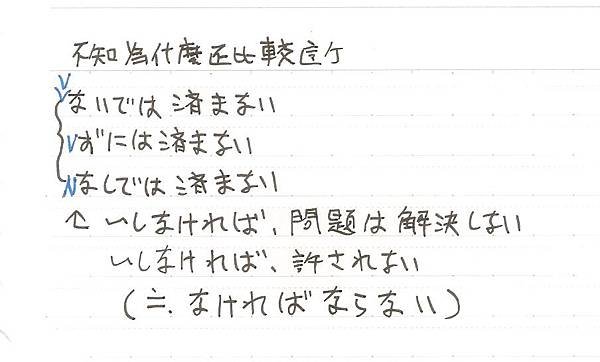 不知為什麼 比較
Vないでは済まない
Vずには済まない
Nなしでは済まない
↑ いしなければ、問題は解決しない
いしなければ、許されない
(≒. なければならない)